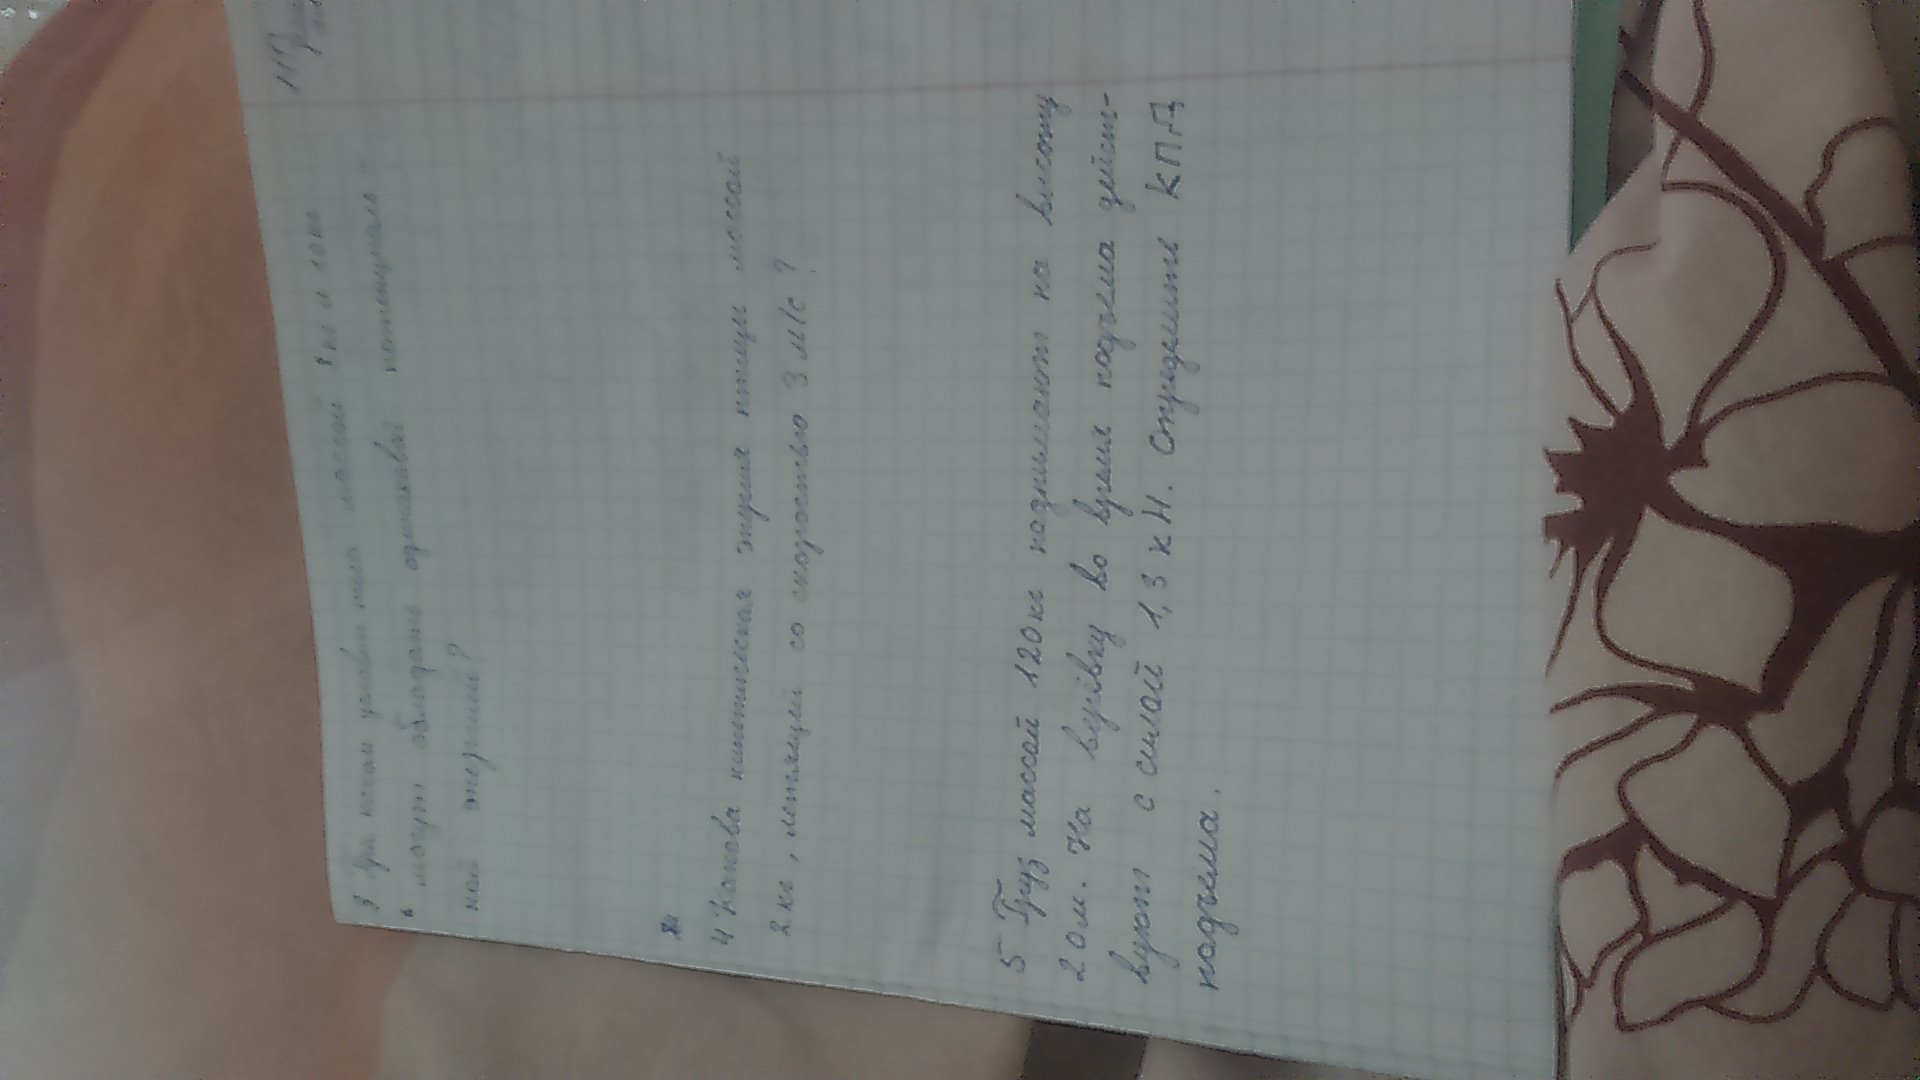 3 При каком условии тела массой 8 кг и 10 кг
могут обладать одинаковой потенциаль-
ной энергией?
4 Какова кинетическая энергия птицы массой
2 кг, летящей со скоростью 3 м/с?
5 Груз массой 120 кг поднимают на высоту
20 м. На верёвку во время подъема дейст-
вуют с силой 1,3 кН. Определите КПД
подъема.